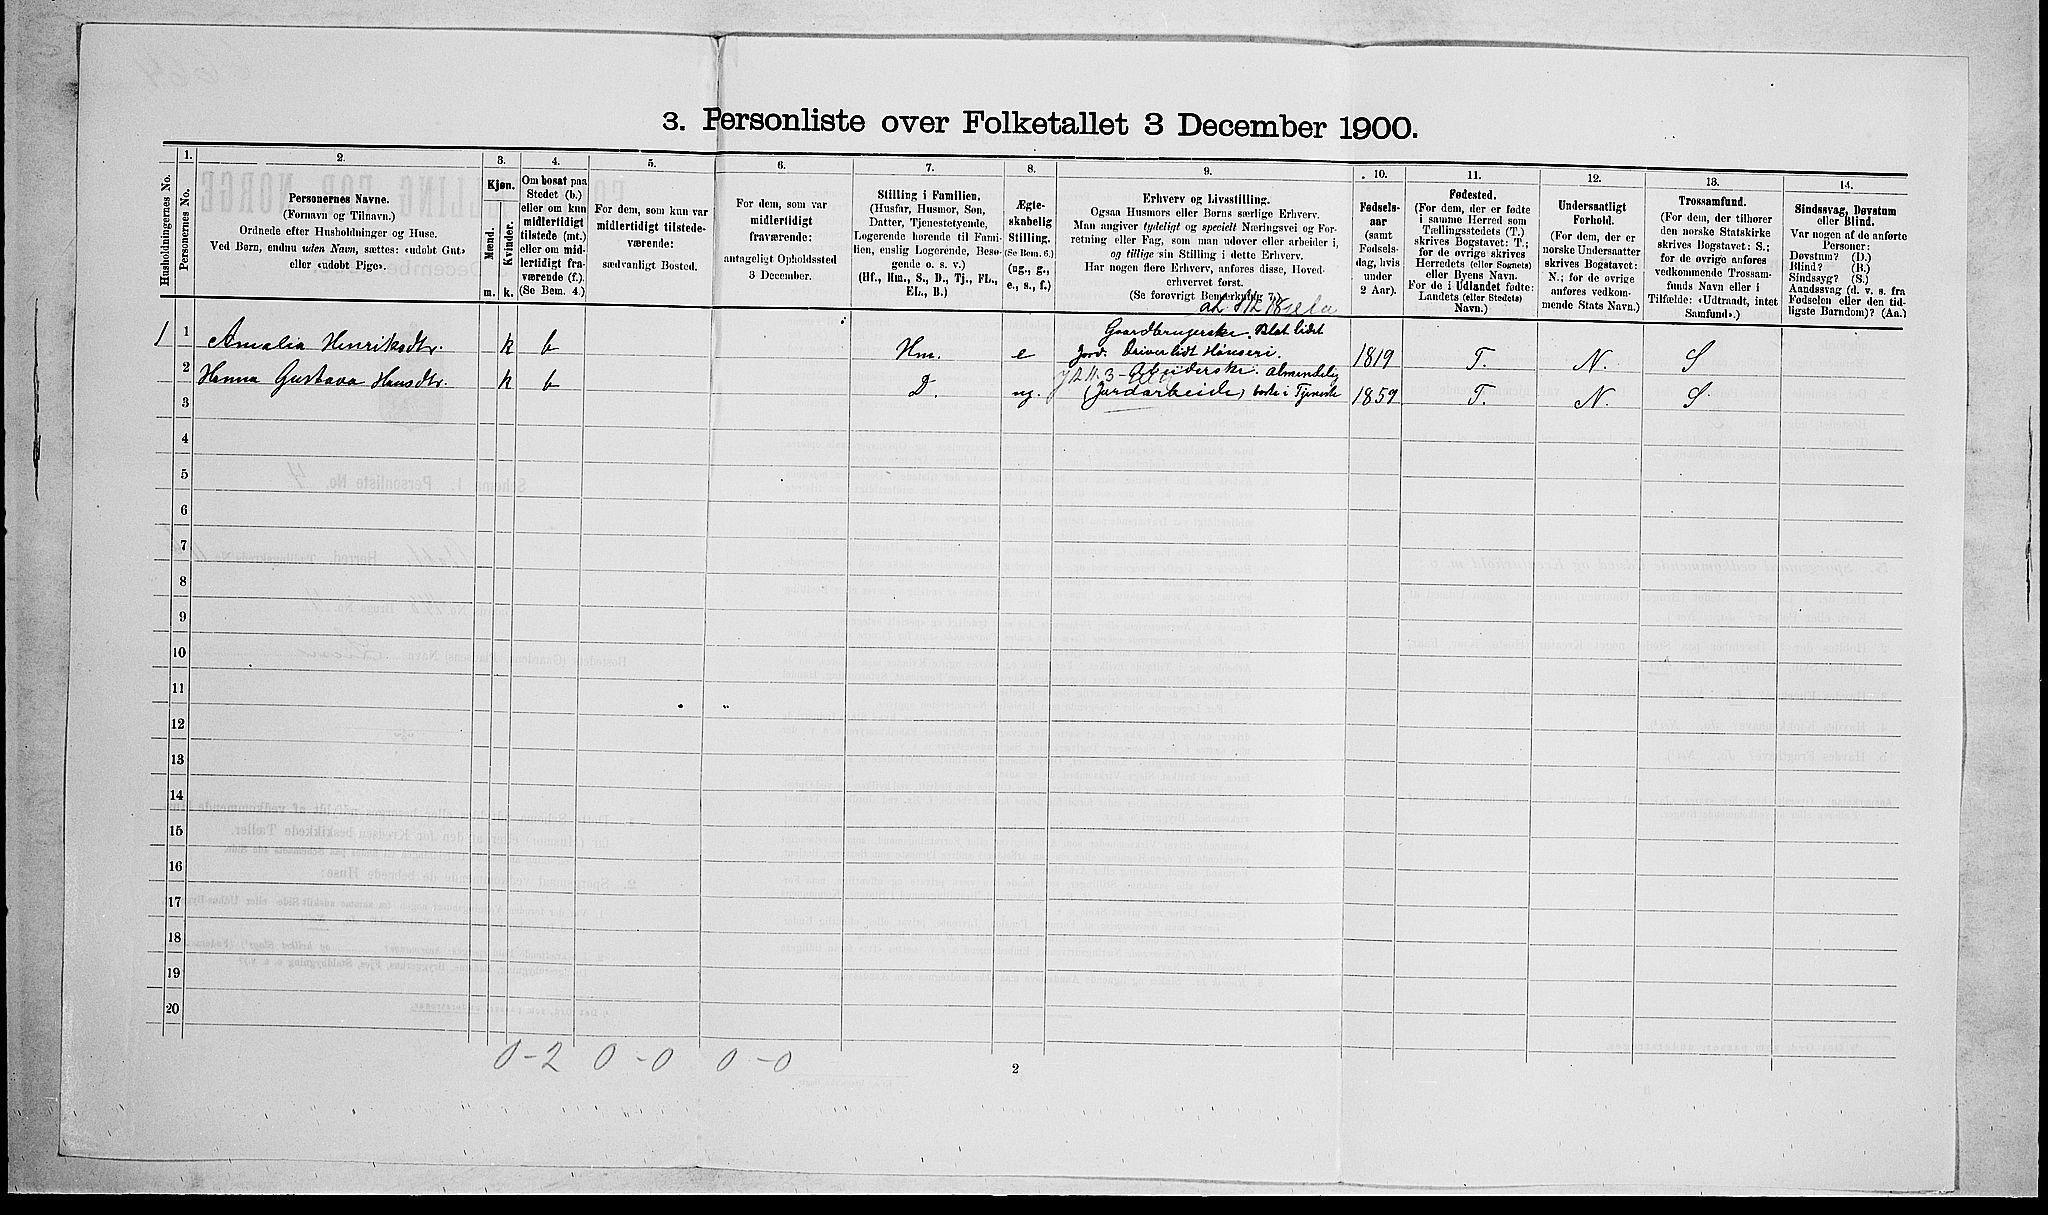 3. Personliste over Folketallet 3 December 1900.
Husholdningernes No.
1.
Personernes No.
2.
Personernes Navne.
(Fornavn og Tilnavn.)
Ordnede efter Husholdninger og Huse.
Ved Børn, endnu uden Navn, sættes: «udøbt Gut»
eller «udøbt Pige».
3.
Kjøn.
Mænd.
Kvinder.
m.
k.
4.
Om bosat paa
Stedet (b.)
eller om kun
midlertidigt
tilstede (mt.)
eller om mid-
lertidigt fra-
værende (f.).
(Se Bem. 4.)
5.
For dem, som kun var
midlertidigt tilstede-
værende:
sædvanligt Bosted.
6.
For dem, som var
midlertidigt
fraværende:
antageligt Opholdssted
3 December.
7.
Stilling i Familien.
(Husfar, Husmor, Søn,
Datter, Tjenestetyende,
Logerende hørende til Fami-
lien, enslig Logerende, Besø-
gende o. s. v.)
(Hf., Hm., S., D., Tj., FL.,
EL., B.)
8.
Ægte-
skabelig
Stilling.
(Se Bem. 6.)
(ug., g.,
e., s., f.)
9.
Erhverv og Livsstilling.
Ogsaa Husmors eller Børns særlige Erhverv.
Man angiver tydeligt og specielt Næringsvei og For-
retning eller Fag, som man udover eller arbeider i,
og tillige sin Stilling i dette Erhverv.
Har nogen flere Erhverv, anføres disse, Hoved-
erhvervet først.
(Se forøvrigt Bemerkning 7.)
10.
Fødsels-
aar
(samt
Fødsels-
dag, hvis
under
2 Aar).
11.
Fødested.
(For dem, der er fødte
i samme Herred som
Tællingsstedets (T.)
skrives Bogstavet: T.;
for de øvrige skrives
Herredets (eller Sognets)
eller Byens Navn.
For de i Udlandet fødte:
Landets (eller Stedets)
Navn.)
12.
Undersaatligt
Forhold.
(For dem, der er
norske Undersaatter
skrives Bogstavet:
N.; for de øvrige
anføres vedkom-
mende Stats Navn.)
13.
Trossamfund.
(For dem, der tilhører
den norske Statskirke
skrives Bogstavet: S.;
for de øvrige anføres
vedkommende Trossam-
funds Navn eller i
Tilfælde: «Udtraadt, intet
Samfund».)
14.
Sindssvag, Døvstum
eller Blind.
Var nogen af de anførte
Personer:
Døvstum? (D.)
Blind? (B.)
Sindssyg? (S.)
Aandssvag (d. v. s. fra
Fødselen eller den tid-
ligste Barndom)? (Aa.)
1 1 Amalia Henriksdtr. k b Hm. e Gaardbrugerske. lidet
Jord. Driver lidt Hønseri. 1819 T. N. S
2 Hanna Gustava Hansdtr. k b D. ug. almindelig
(Jordarbeide) i Tjeneste 1859 T. N. S.
3
4
5
6
7
8
9
10
11
12
13
14
15
16
17
18
19
20
0-2 0-0 0-0
2